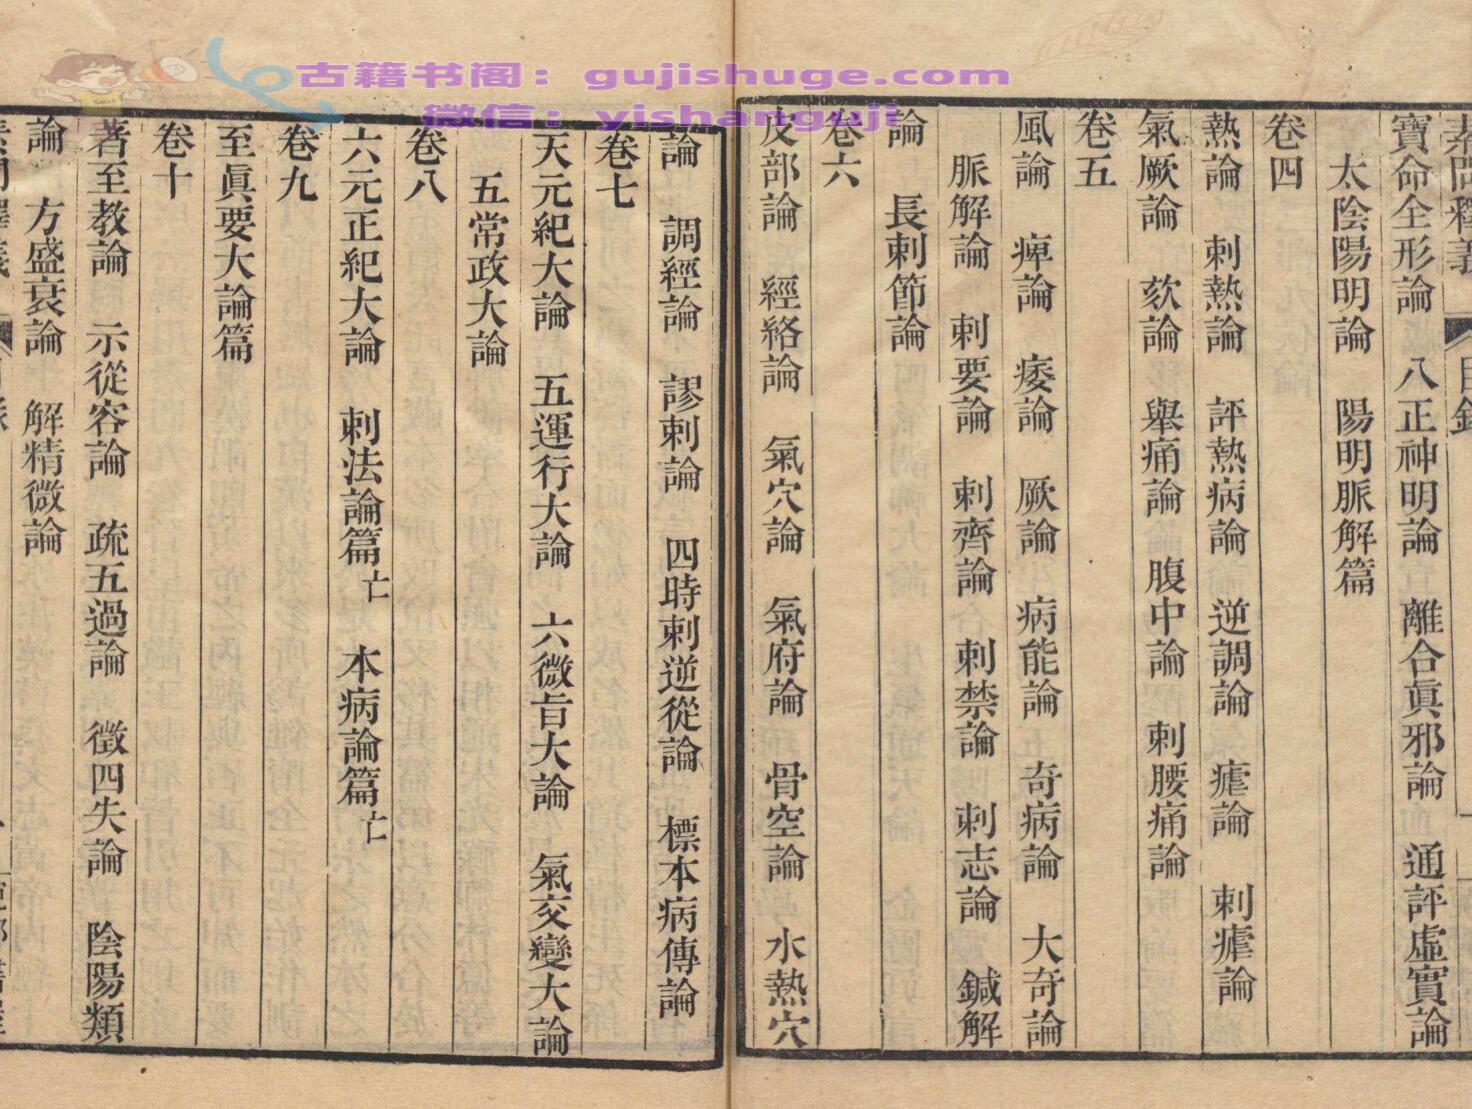 古籍书阁：gujishuge.com
微信：yishanguji
素問釋義 目錄
寶命全形論 八正神明論 離合眞邪論 通評虛實論
太陰陽明論 陽明脈解篇
卷四
熱論 刺熱論 評熱病論 逆調論 瘧論 刺瘧論
氣厥論 欬論 舉痛論 腹中論 刺腰痛論
卷五
風論 痺論 痿論 厥論 病能論 奇病論 大奇論
脈解論 刺要論 刺齊論 刺禁論 刺志論 鍼解
論 長刺節論
卷六
皮部論 經絡論 氣穴論 氣府論 骨空論 水熱穴
論 調經論 謬刺論 四時刺逆從論 標本病傳論
卷七
天元紀大論 五運行大論 六微旨大論 氣交變大論
五常政大論
卷八
六元正紀大論 刺法論篇亡 本病論篇亡
卷九
至眞要大論篇
卷十
著至教論 示從容論 疏五過論 徵四失論 陰陽類
論 方盛衰論 解精微論